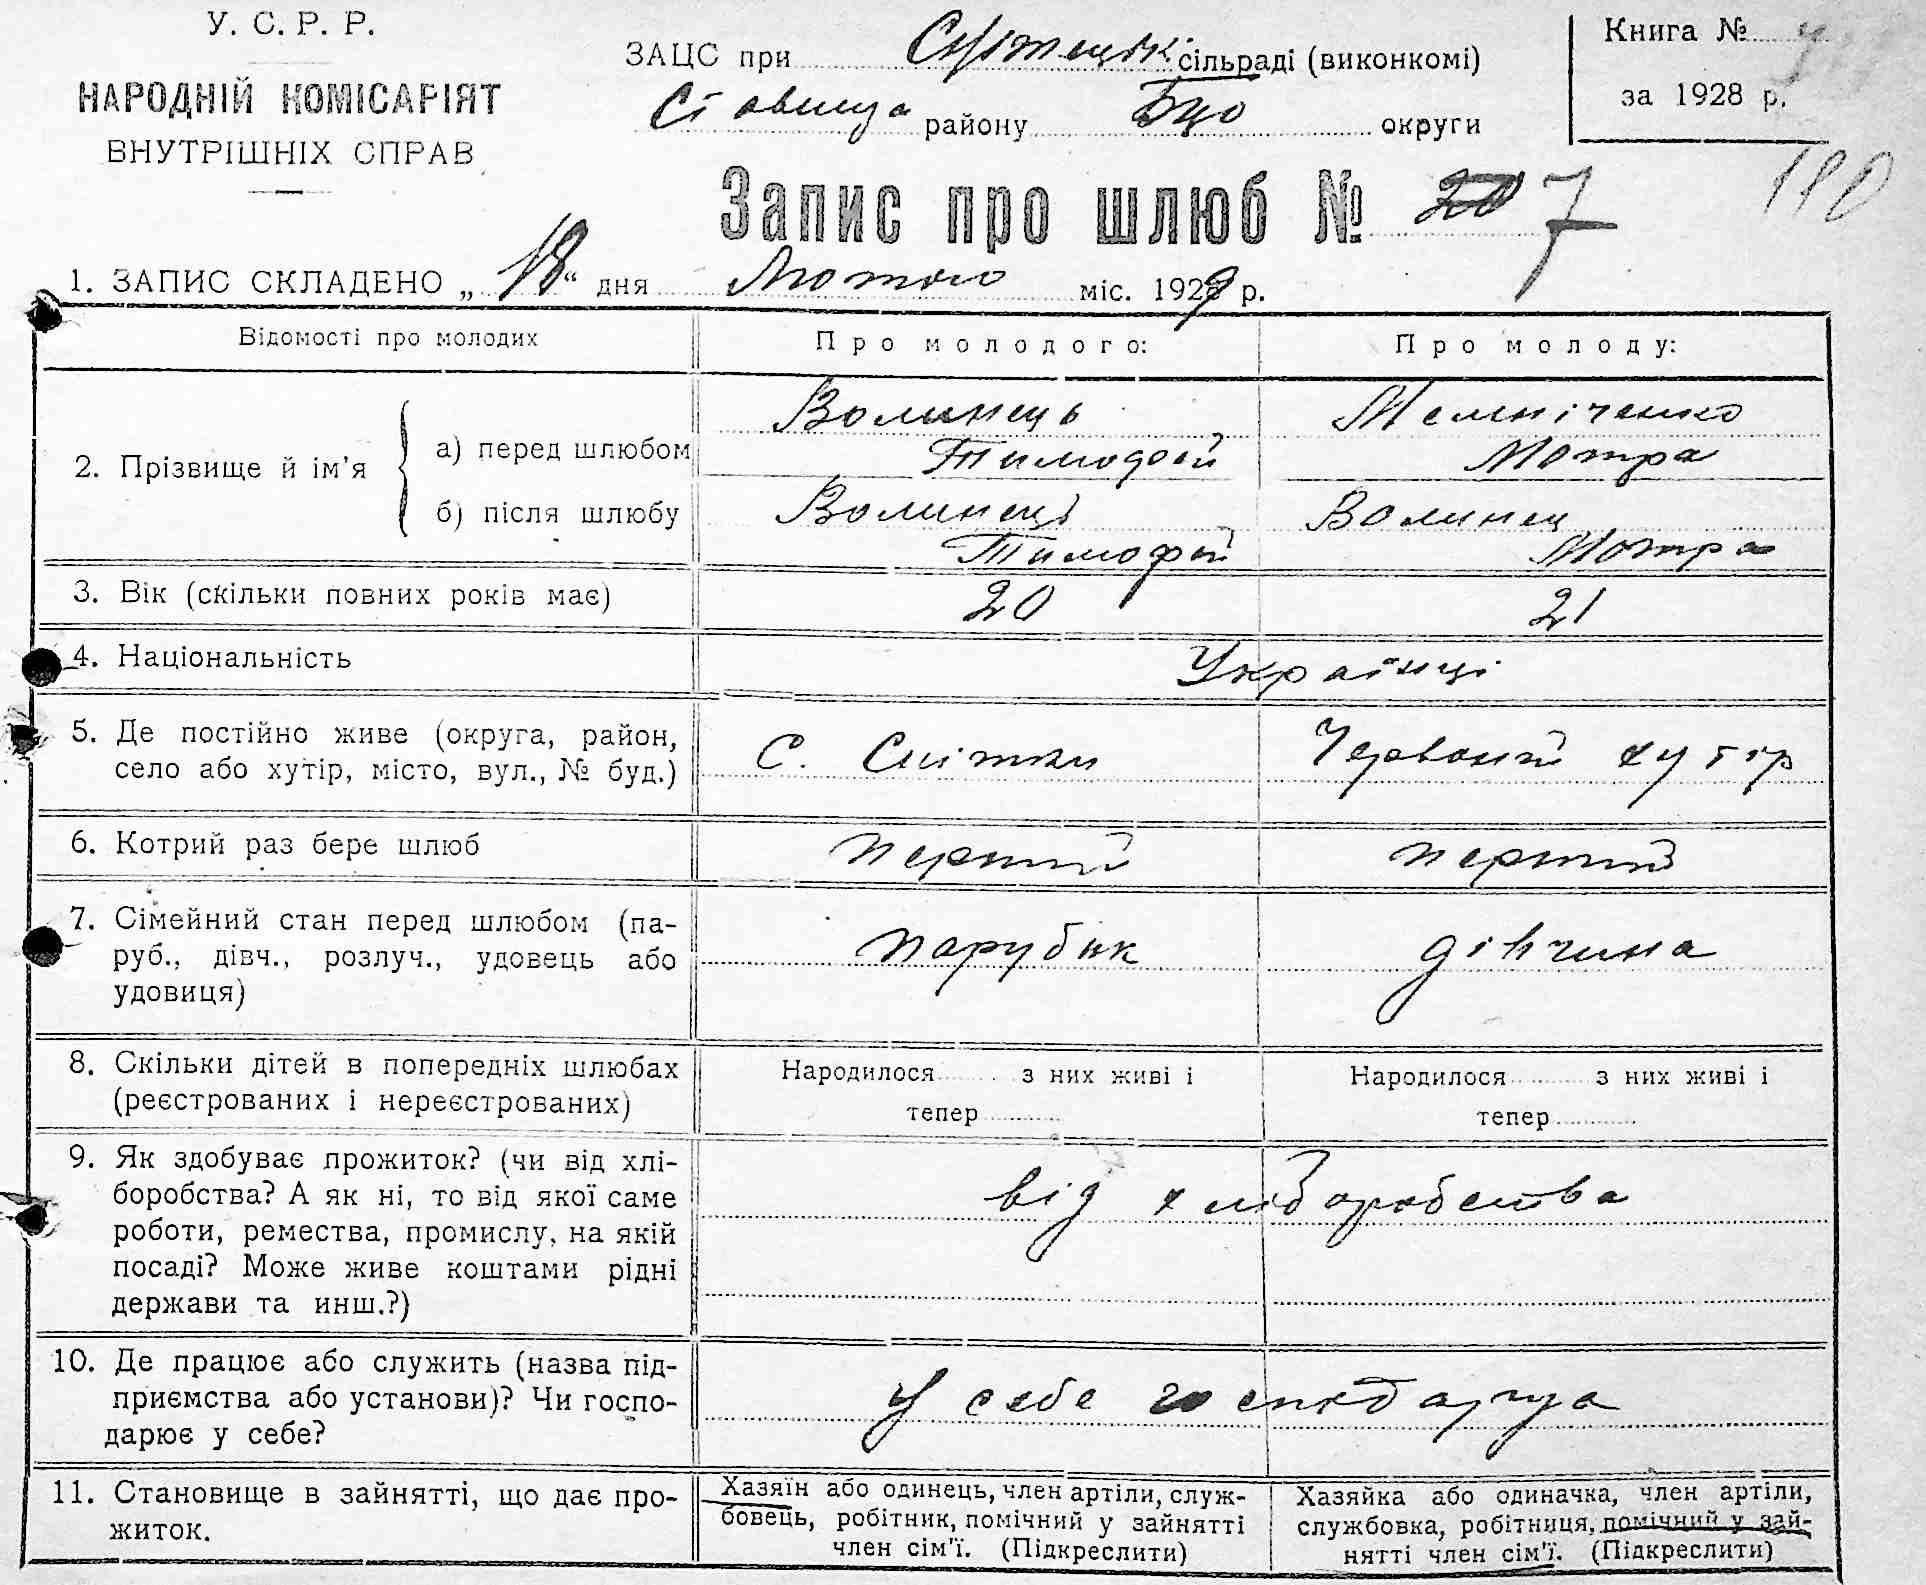 У. С. Р. Р.
НАРОДНІЙ КОМІСАРІЯТ
ВНУТРІШНІХ СПРАВ
ЗАЦС при сільраді (виконкомі)
Ставища району Бцо округи
Книга №
за 1928 р.
190
Запис про шлюб № 20 7
1. ЗАПИС СКЛАДЕНО „18“ дня Лютого міс. 1929 р.
Відомості про молодих
Про молодого:
Про молоду:
2. Прізвище й ім’я
а) перед шлюбом
Волинець
Тимофей
Мельніченко
Мотра
б) після шлюбу
Волинець
Тимофей
Волинец
Мотра
3. Вік (скільки повних років має)
20
21
4. Національність
Українці
5. Де постійно живе (округа, район,
село або хутір, місто, вул., № буд.)
С. Снітки
Червоний хутір
6. Котрий раз бере шлюб
перший
перший
7. Сімейний стан перед шлюбом (па-
руб., дівч., розлуч., удовець або
удовиця)
парубок
дівчина
8. Скільки дітей в попередніх шлюбах
(реєстрованих і нереєстрованих)
Народилося з них живі і
тепер
Народилося з них живі і
тепер
9. Як здобуває прожиток? (чи від хлі-
боробства? А як ні, то від якої саме
роботи, ремества, промислу, на якій
посаді? Може живе коштами рідні
держави та инш.?)
від хліборобства
10. Де працює або служить (назва під-
приємства або установи)? Чи госпо-
дарює у себе?
У себе господарця
11. Становище в зайнятті, що дає про-
житок.
Хазяїн або одинець, член артіли, служ-
бовець, робітник, помічний у зайнятті
член сім’ї. (Підкреслити)
Хазяйка або одиначка, член артіли,
службовка, робітниця, помічний у зай-
нятті член сім’ї. (Підкреслити)